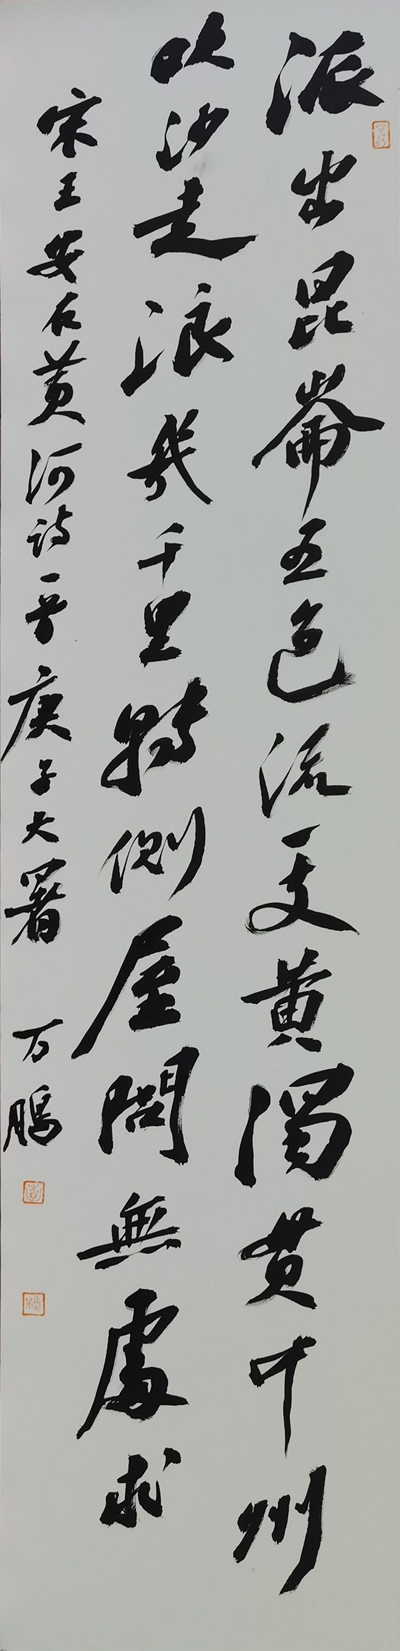 派出昆崙五色流一支黄濁贯中州
吹沙走浪幾千里轉側屋問無處求
宋王安石黄河诗一首庚子大暑 万鹏